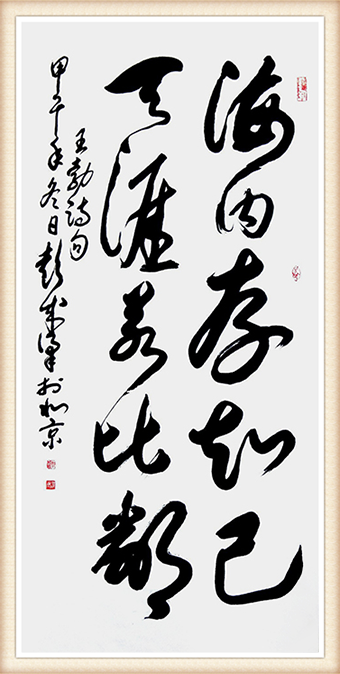 海内存知己
天涯若比鄰
王勃诗句
甲午年冬日彭成於北京